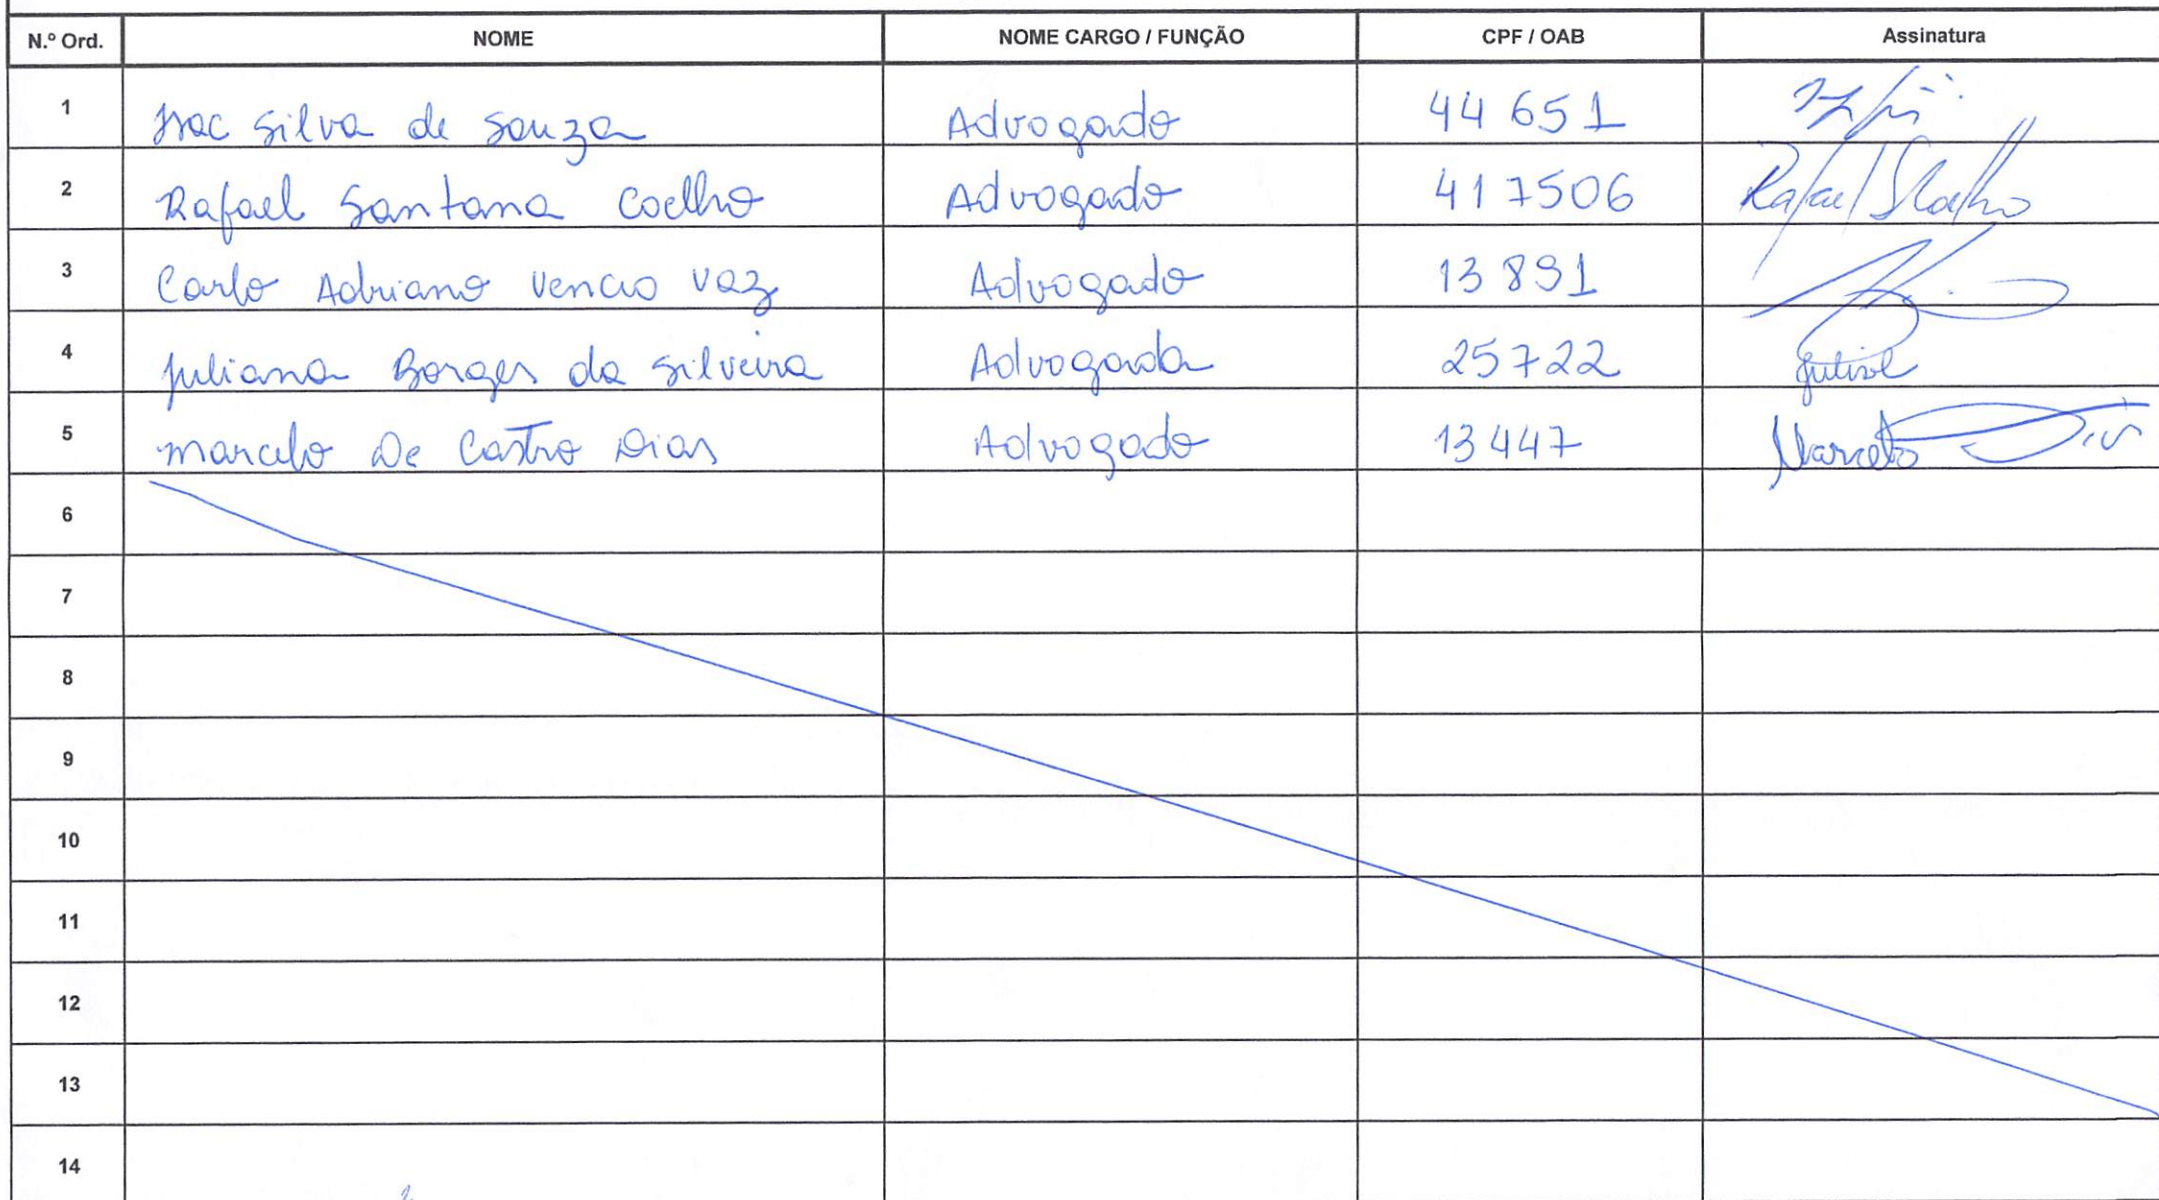 N.º Ord. NOME NOME CARGO / FUNÇÃO CPF / OAB Assinatura
1 Isac Silva de Souza Advogado 44 651
2 Rafael Santana Coelho Advogado 417506 Rafael SCoelho
3 Carlo Adriano Vencio Vaz Advogado 13 891
4 Juliana Borges da Silveira Advogada 25722
5 Marcelo De Castro Dias Advogado 13447 Marcelo Dias
6
7
8
9
10
11
12
13
14